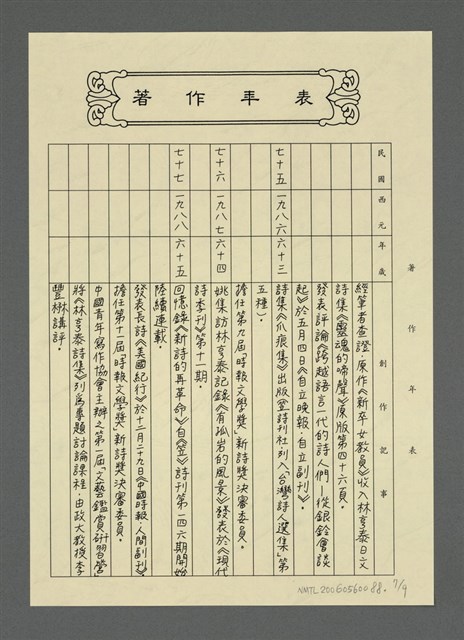 著作年表
著作年表
民國 西元 年歲 創作記事
經筆者查證，原作《新卒女教員》收入林亨泰日文
詩集《靈魂的啼聲》原版第四十六頁。
發表評論《跨越語言一代的詩人們－從銀鈴會談
起》於五月四日《自立晚報‧自立副刊》。
七十五 一九八六 六十三 詩集《爪痕集》出版（笠詩刊社列入《台灣詩人選集》第
五種）。
擔任第九屆「時報文學獎」新詩獎決審委員。
七十六 一九八七 六十四 姚集訪林亨泰記錄《有孤岩的風景》發表於《現代
詩季刊》第十一期。
七十七 一九八八 六十五 回憶錄《新詩的再革命》自《笠》詩刊第一四六期開始
陸續連載。
發表長詩《美國紀行》於十二月二十九日《中國時報‧人間副刊》
擔任第十一屆「時報文學獎」新詩獎決審委員。
中國青年寫作協會主辦之第一屆「文藝鑑賞研習營」
將《林亨泰詩集》列為專題討論課程，由政大教授李
豐楙講評。
NMTL20060560088. 7/9